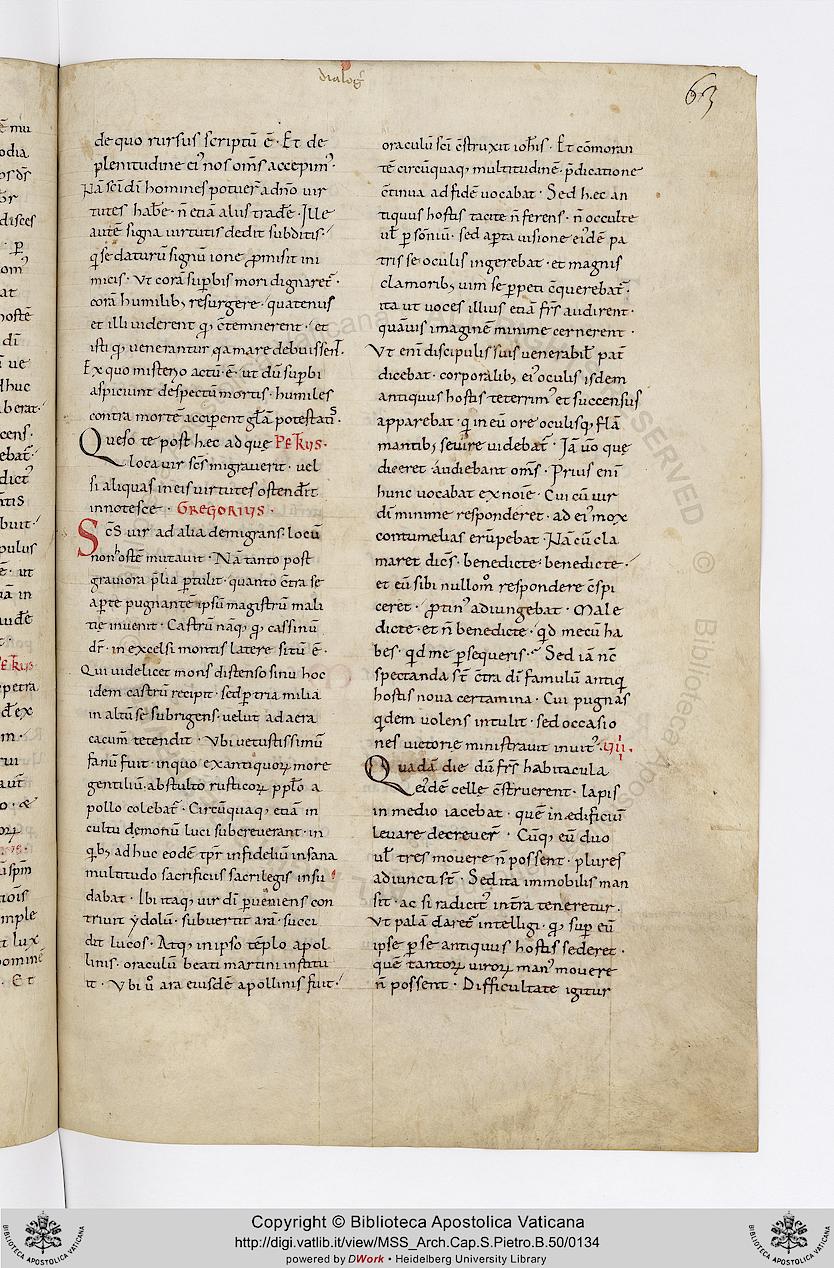 dialog̃
63
de quo rursus scriptũ ẽ · Et de
plenitudine ei' nos om̃s accepim' ·
Nã sc̃i dĩ homines potuer̃ a dño vir
tutes hab̃e · ñ etiã aliis trad̃e · Ille
autẽ signa virtutis dedit subditis ·
q se daturũ signũ ione promisit ini
micis · Vt corã sup̱bis mori dignaret̃ ·
corã humilib; resurgere · quatenus
et illi viderent qͥ c̃temnerent · et
isti qͥ venerantur qͣ amare debuissent̃ ·
Ex quo misterio actũ ẽ · ut dũ sup̱bi
aspiciunt despectũ mortis · humiles
contra mortẽ accip̱ent gl̃ã potestatis̃ ·
Queso te post hec ad quę PETRVS ·
loca vir sc̃s migraverit · vel
si aliquas in eis virtutes ostend̃it
innotesce · GREGORIVS ·
Sc̃s vir ad alia demigrans · locũ
non hostẽ mutavit · Nã tanto post
graviora p̃lia p̱tulit · quanto c̃tra se
ap̱te pugnantẽ ipsũ magistrũ mali
tię invenit · Castrũ naq; qͥ cassinũ
dr̃ · in excelsi montis latere sitũ ẽ ·
Qui videlicet mons distenso sinu hoc
idem castrũ recipit · sed p̱ tria milia
in altũ se subrigens · velut ad aera
cacum̃ tetendit · Vbi vetustissimũ
fanũ fuit · in quo ex antiquoꝝ more
gentiliũ · ab stulto rusticoꝝ pp̃lo a
pollo colebat̃ · Circũquaq; etiã in
cultu demoniũ luci subcreverant · in
qͥb; adhuc eodẽ tp̃r infideliũ insana
multitudo sacrificiis sacrilegis insu
dabat · Ibi itaq; vir dĩ p̱veniens con
trivit ydolũ · subvertit arã · succi
dit lucos · Atq; in ipso tẽplo apol
linis · oraculũ beati martini institu
it · Vbi ů ara eiusdẽ apollinis fuit ·
oraculũ sc̃i c̃struxit ioh̃is · Et cõmoran
tẽ circũquaq; multitudinẽ · p̃dicatione
c̃tinua ad fidẽ vocabat · Sed hec an
tiquus hostis tacite ñ ferens · ñ occulte
ul̃ p̱ sõniũ · sed ap̱ta visione eidẽ pa
tris se oculis ingerebat · et magnis
clamorib; vim se p̱peti c̃querebat̃ ·
ita ut voces illius etiã fr̃s audirent ·
quãvis imaginẽ minime cernerent ·
Vt enĩ discipulis suis venerabil̃ pat̃
dicebat · corporalib; ei' oculis isdem
antiquus hostis teterrim' et succensus
apparebat · qͥ in eũ ore oculisq; flã
mantib; sevire videbat̃ · Iã ůo quę
diceret audiebant om̃s · Prius enĩ
hunc vocabat ex noĩe · Cui cũ vir
dĩ minime responderet · ad ei' mox
contumelias erũpebat · Nã cũ cla
maret dicẽs · benedicte · benedicte ·
et eũ sibi nullom̊ respondere c̃spi
ceret · protin' adiungebat · Male
dicte · et ñ benedicte · qͥd mecũ ha
bes · qͥd me p̱sequeris · Sed iã nc̃
spectanda st̃ c̃tra dĩ famulũ antiqͥ
hostis nova certamina · Cui pugnas
qͥdem volens intulit · sed occasio
nes victorię ministravit invit' · VIIII ·
Quadã die dũ fr̃s habitacula
eidẽ cellę c̃struerent · lapis
in medio iacebat · quẽ in edificiũ
levare decrever̃ · Cũq; eũ duo
ul̃ tres movere ñ possent · plures
adiuncti st̃ · Sed ita immobilis man
sit · ac si radicit' in t̃ra teneretur ·
Vt palã daret̃ intelligi · qͥ sup̱ eũ
ipse p̱ se antiquus hostis sederet ·
quẽ tantoꝝ viroꝝ man' movere
ñ possent · Difficultate igitur
Copyright © Biblioteca Apostolica Vaticana
http://digi.vatlib.it/view/MSS_Arch.Cap.S.Pietro.B.50/0134
powered by DWork • Heidelberg University Library